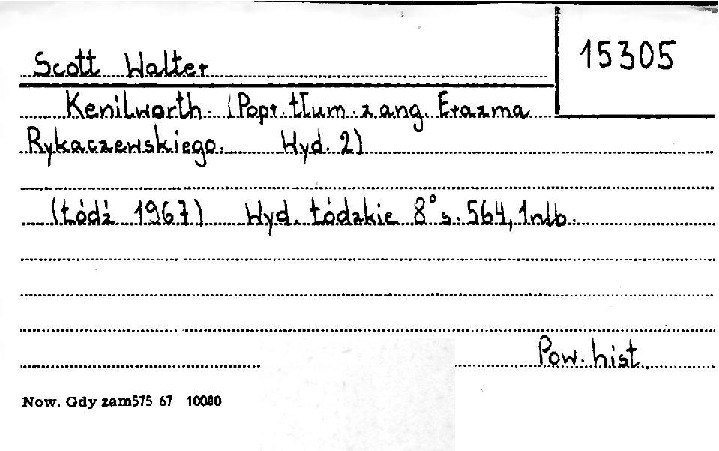 15305
Scott Walter
Kenilworth. (Popr. tłum. z ang. Erazma
Rykaczewskiego. Wyd. 2)
(Łódź 1967) Wyd. Łódzkie 8° s. 564, 1 nlb.
Pow. hist.
Now. Gdy zam575 67 10080